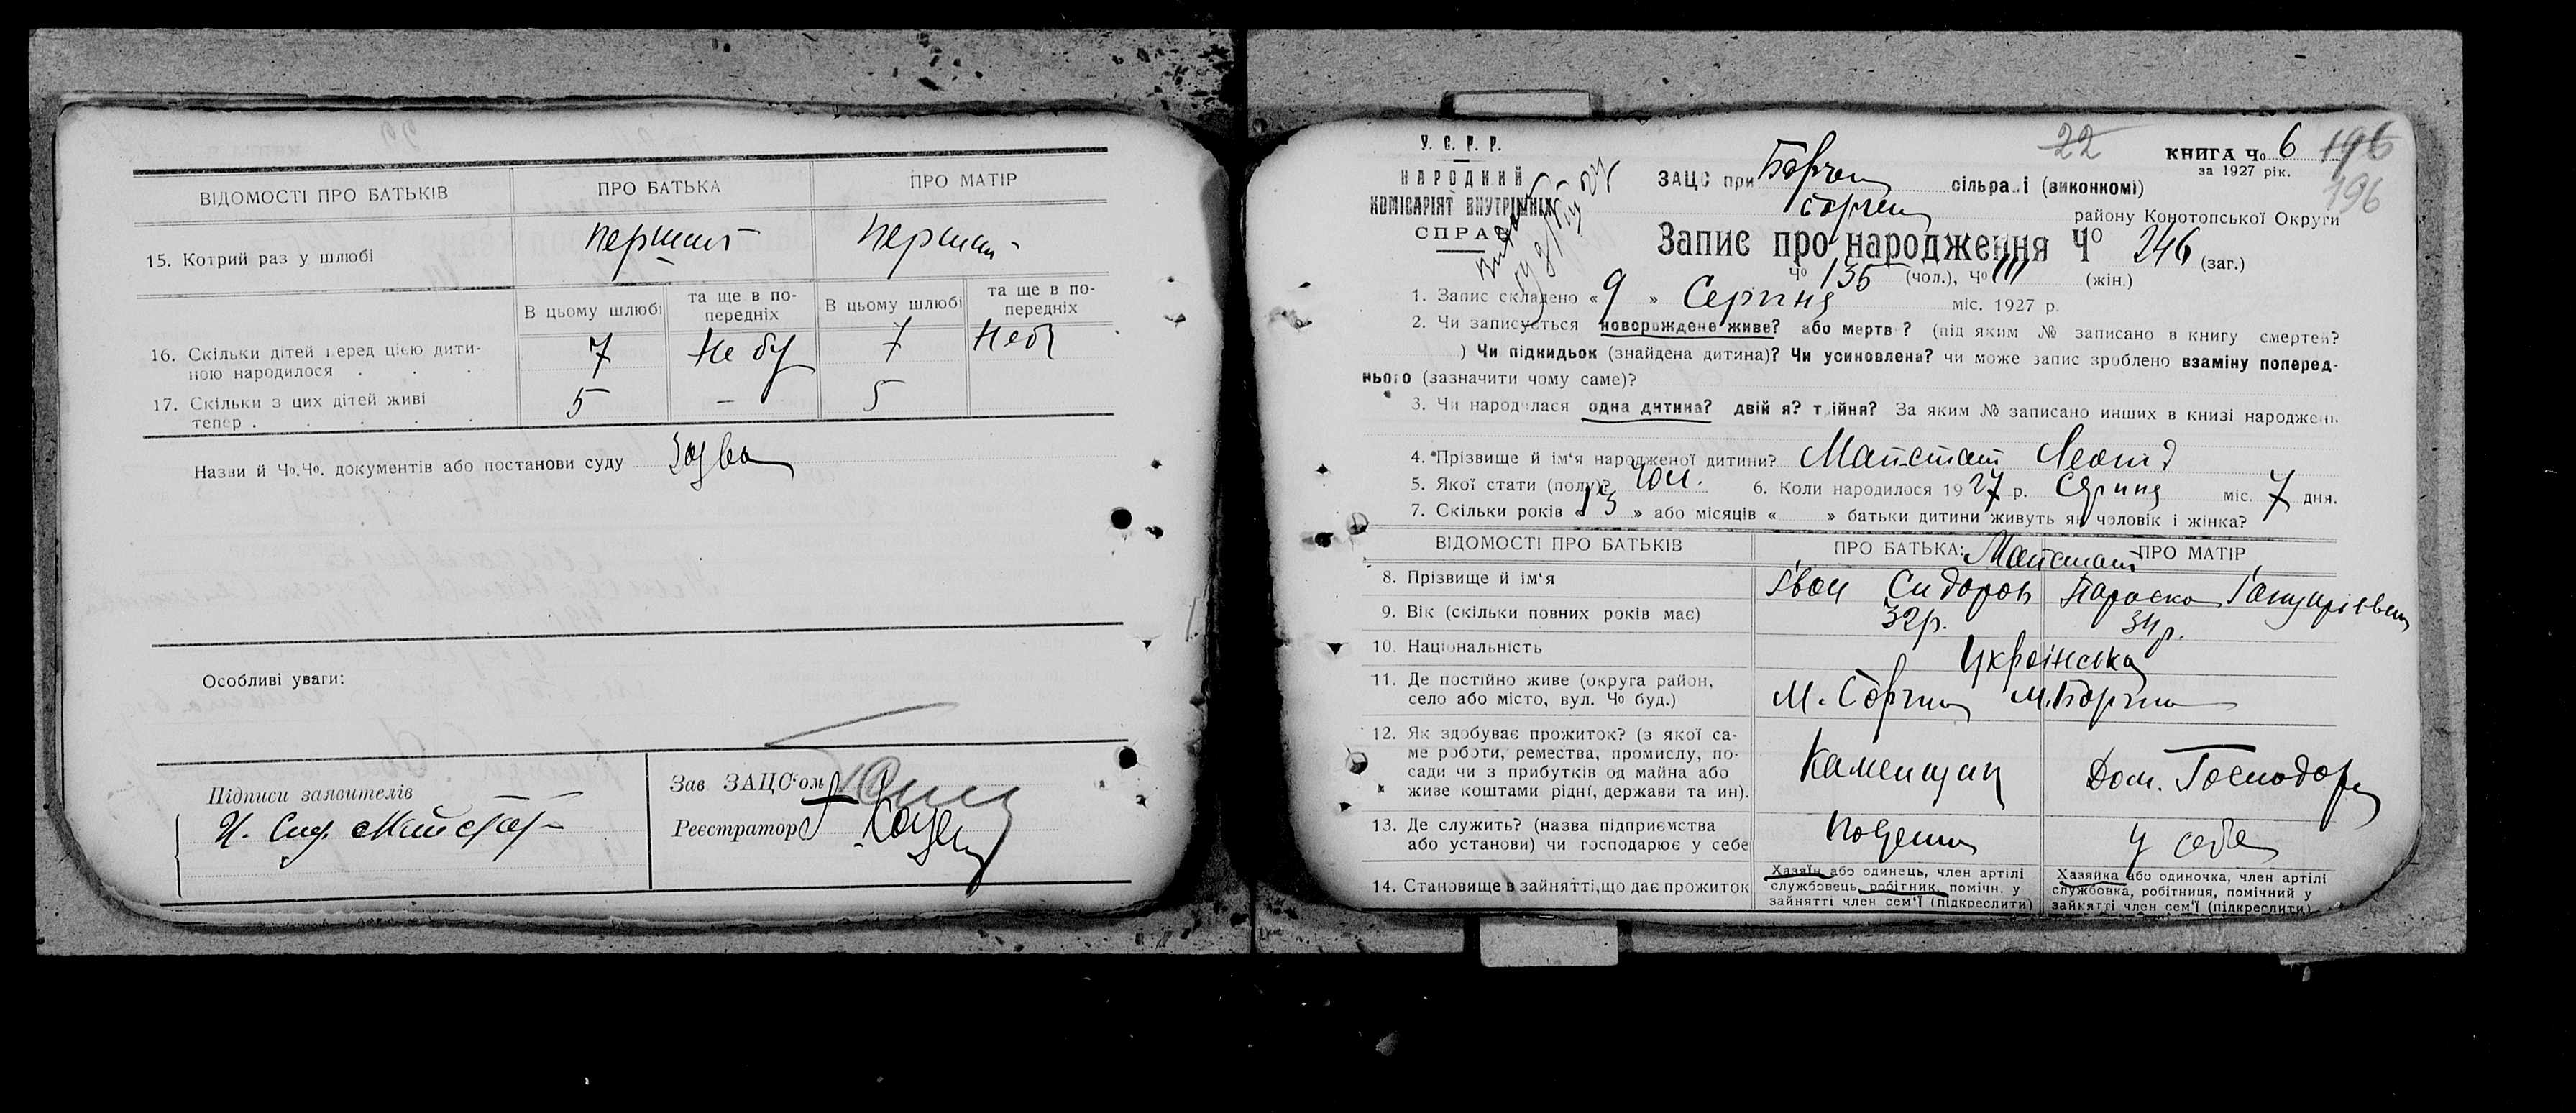 ВІДОМОСТІ ПРО БАТЬКІВ ПРО БАТЬКА ПРО МАТІР
15. Котрий раз у шлюбі перший перший
В цьому шлюбі та ще в по-передніх В цьому шлюбі та ще в по-передніх
16. Скільки дітей перед цією дити-
ною народилося . . . 7 Не бу 7 Неб
17. Скільки з цих дітей живі
тепер . . . . . 5 — 5
Назви й Чо.Чо. документів або постанови суду Заява
Особливі уваги:
Підписи заявителів
И. Сид. Майстат
Зав ЗАЦС'ом
Реєстратор
У. С. Р. Р.
НАРОДНИЙ
КОМІСАРІЯТ ВНУТРІШНІХ
СПРАВ
22
КНИГА Чо 6
за 1927 рік.
196
196
ЗАЦС при Борзен сільраді (виконкомі)
Борзен району Конотопської Округи
Запис про народження Чо 246 (заг.)
Чо 135 (чол.), Чо 111 (жін.)
1. Запис складено « 9 » Серпня міс. 1927 р.
2. Чи записується новорождене живе? або мертве? (під яким № записано в книгу смертей?
) Чи підкидьок (знайдена дитина)? Чи усиновлена? чи може запис зроблено взаміну поперед-
нього (зазначити чому саме)?
3. Чи народилася одна дитина? двійня? трійня? За яким № записано инших в книзі народжень
4. Прізвище й ім'я народженої дитини? Майстат Леонід
5. Якої стати (полу)? Чол. 6. Коли народилося 1927 р. Серпня міс. 7 дня.
7. Скільки років « 13 » або місяців « » батьки дитини живуть як чоловік і жінка?
ВІДОМОСТІ ПРО БАТЬКІВ ПРО БАТЬКА: ПРО МАТІР
Майстат
8. Прізвище й ім'я Іван Сидоров Параска
9. Вік (скільки повних років має) 32р. 31р.
10. Національність Українська
11. Де постійно живе (округа район,
село або місто, вул. Чо буд.) М. Борзна М. Борзна
12. Як здобуває прожиток? (з якої са-
ме роботи, ремества, промислу, по-
сади чи з прибутків од майна або
живе коштами рідні, держави та ин). Каменщик Дом. Господар
13. Де служить? (назва підприємства
або установи) чи господарює у себе Поденно у себе
14. Становище в зайнятті, що дає прожиток
Хазяїн або одинець, член артілі
службовець, робітник, помічн. у
зайнятті член сем'ї (підкреслити)
Хазяйка або одиночка, член артілі
службовка, робітниця, помічний у
зайнятті член сем'ї (підкреслити)